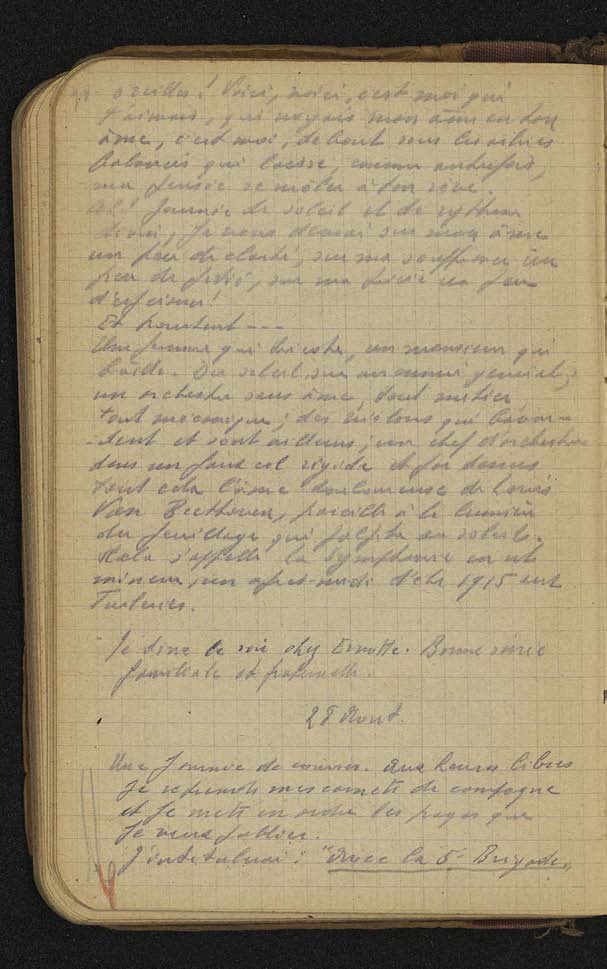 oreilles! Voici, voici, c'est moi qui
t'aimais, qui voyais mon âme en ton
âme, c'est moi, debout sous les arbres
balancés qui laisse, comme autrefois,
ma pensée se mêler à ton rêve.
Oh! Journée de soleil et de rythme
divin, je vous demande sur mon âme
un peu de clarté, sur ma souffrance un
peu de pitié, sur ma un peu
d'
Et pourtant ---
Une femme qui tricote, un monsieur qui
baille. Du soleil, un ennui général;
un orchestre sans âme, tout métier
tout mécanique; des violons qui bavar-
-dent et sont ailleurs; un chef d'orchestre
dans un faux col rigide et par dessus
tout cela l'âme douloureuse de Louis
Van Beethoven, pareille à la lumière
du feuillage qui palpite au soleil.
Cela s'appelle la Symphonie en ut
mineur, un après-midi d'été 1915 aux
Tuileries.
Je dine le soir chez Bonne soirée
familiale et fraternelle.
28 Aout.
Une journée de courses. Aux heures libres
je reprends mes carnets de campagne
et je mets en ordre les pages que
je veux publier.
J'intitulerai: "Avec la 5e Brigade"